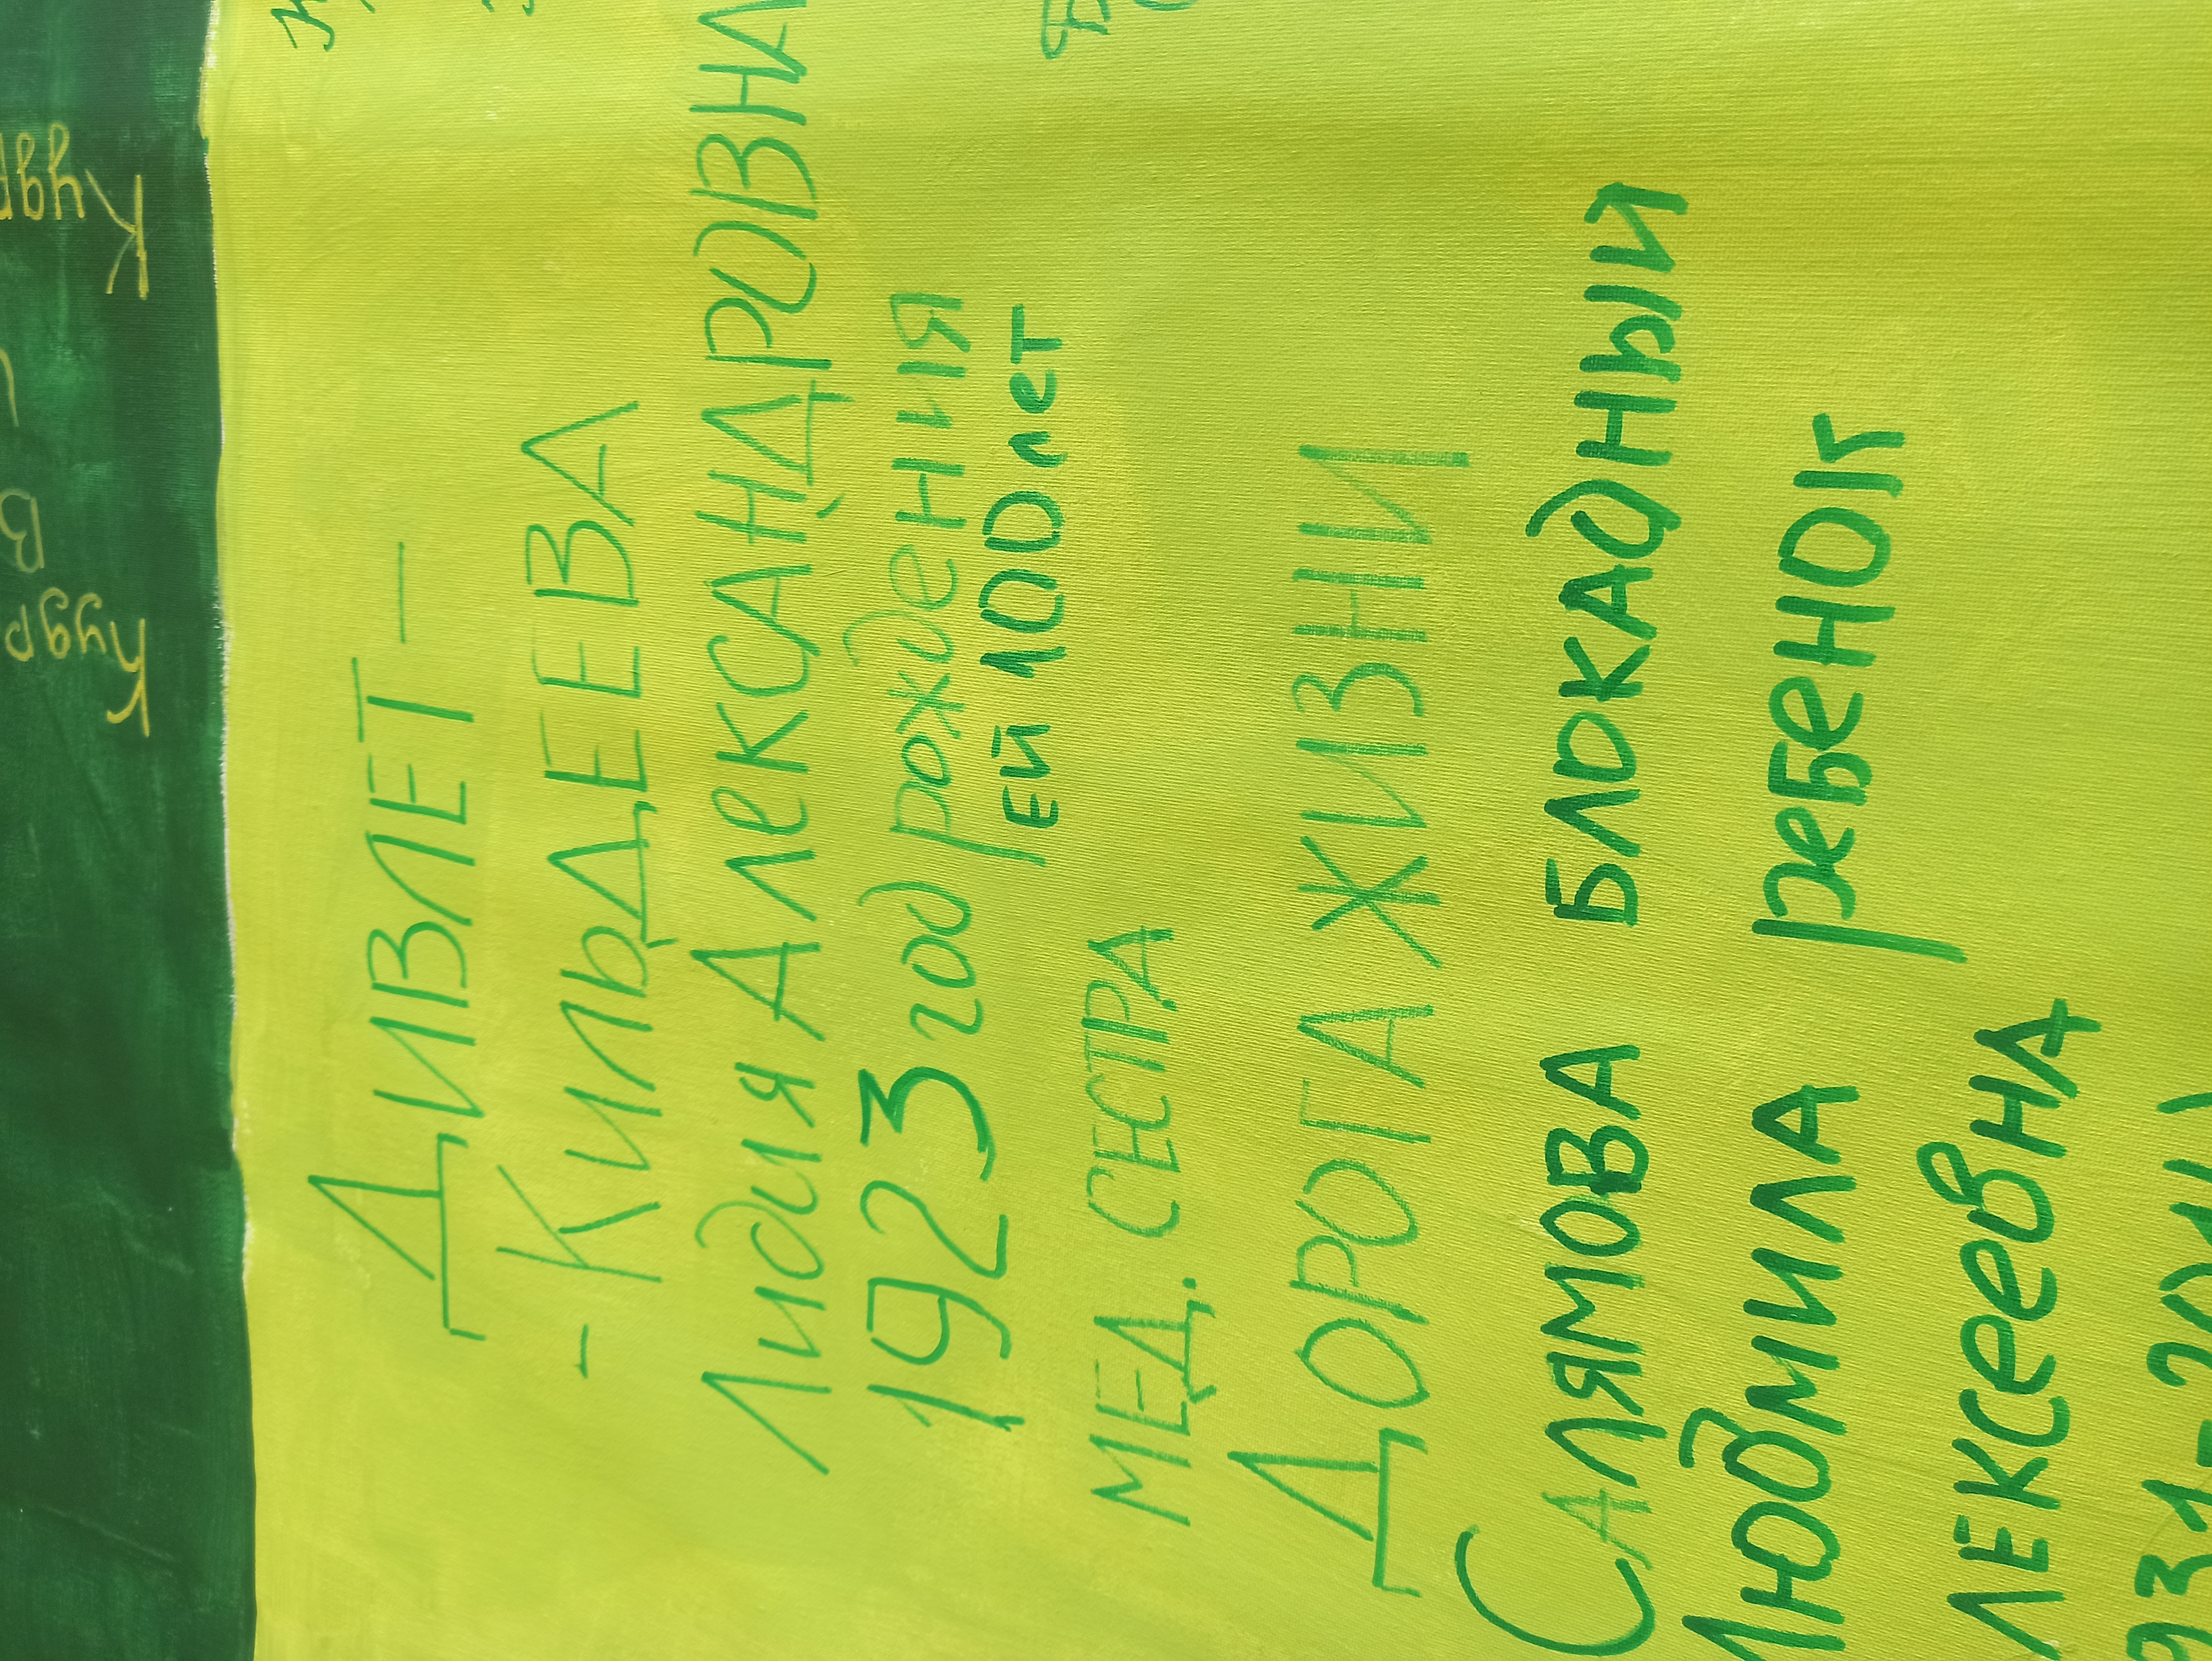 ДИВЛЕТ-
-КИЛЬДЕЕВА
Лидия АЛеКСАНДРОВНА
1923 год рождения
ЕЙ 100 лет
МЕД. СЕСТРА
ДОРОГА ЖИЗНИ
САЛЯМОВА БЛОКАДНЫЙ
Людмила ребенок
ЛЕКСЕЕВНА